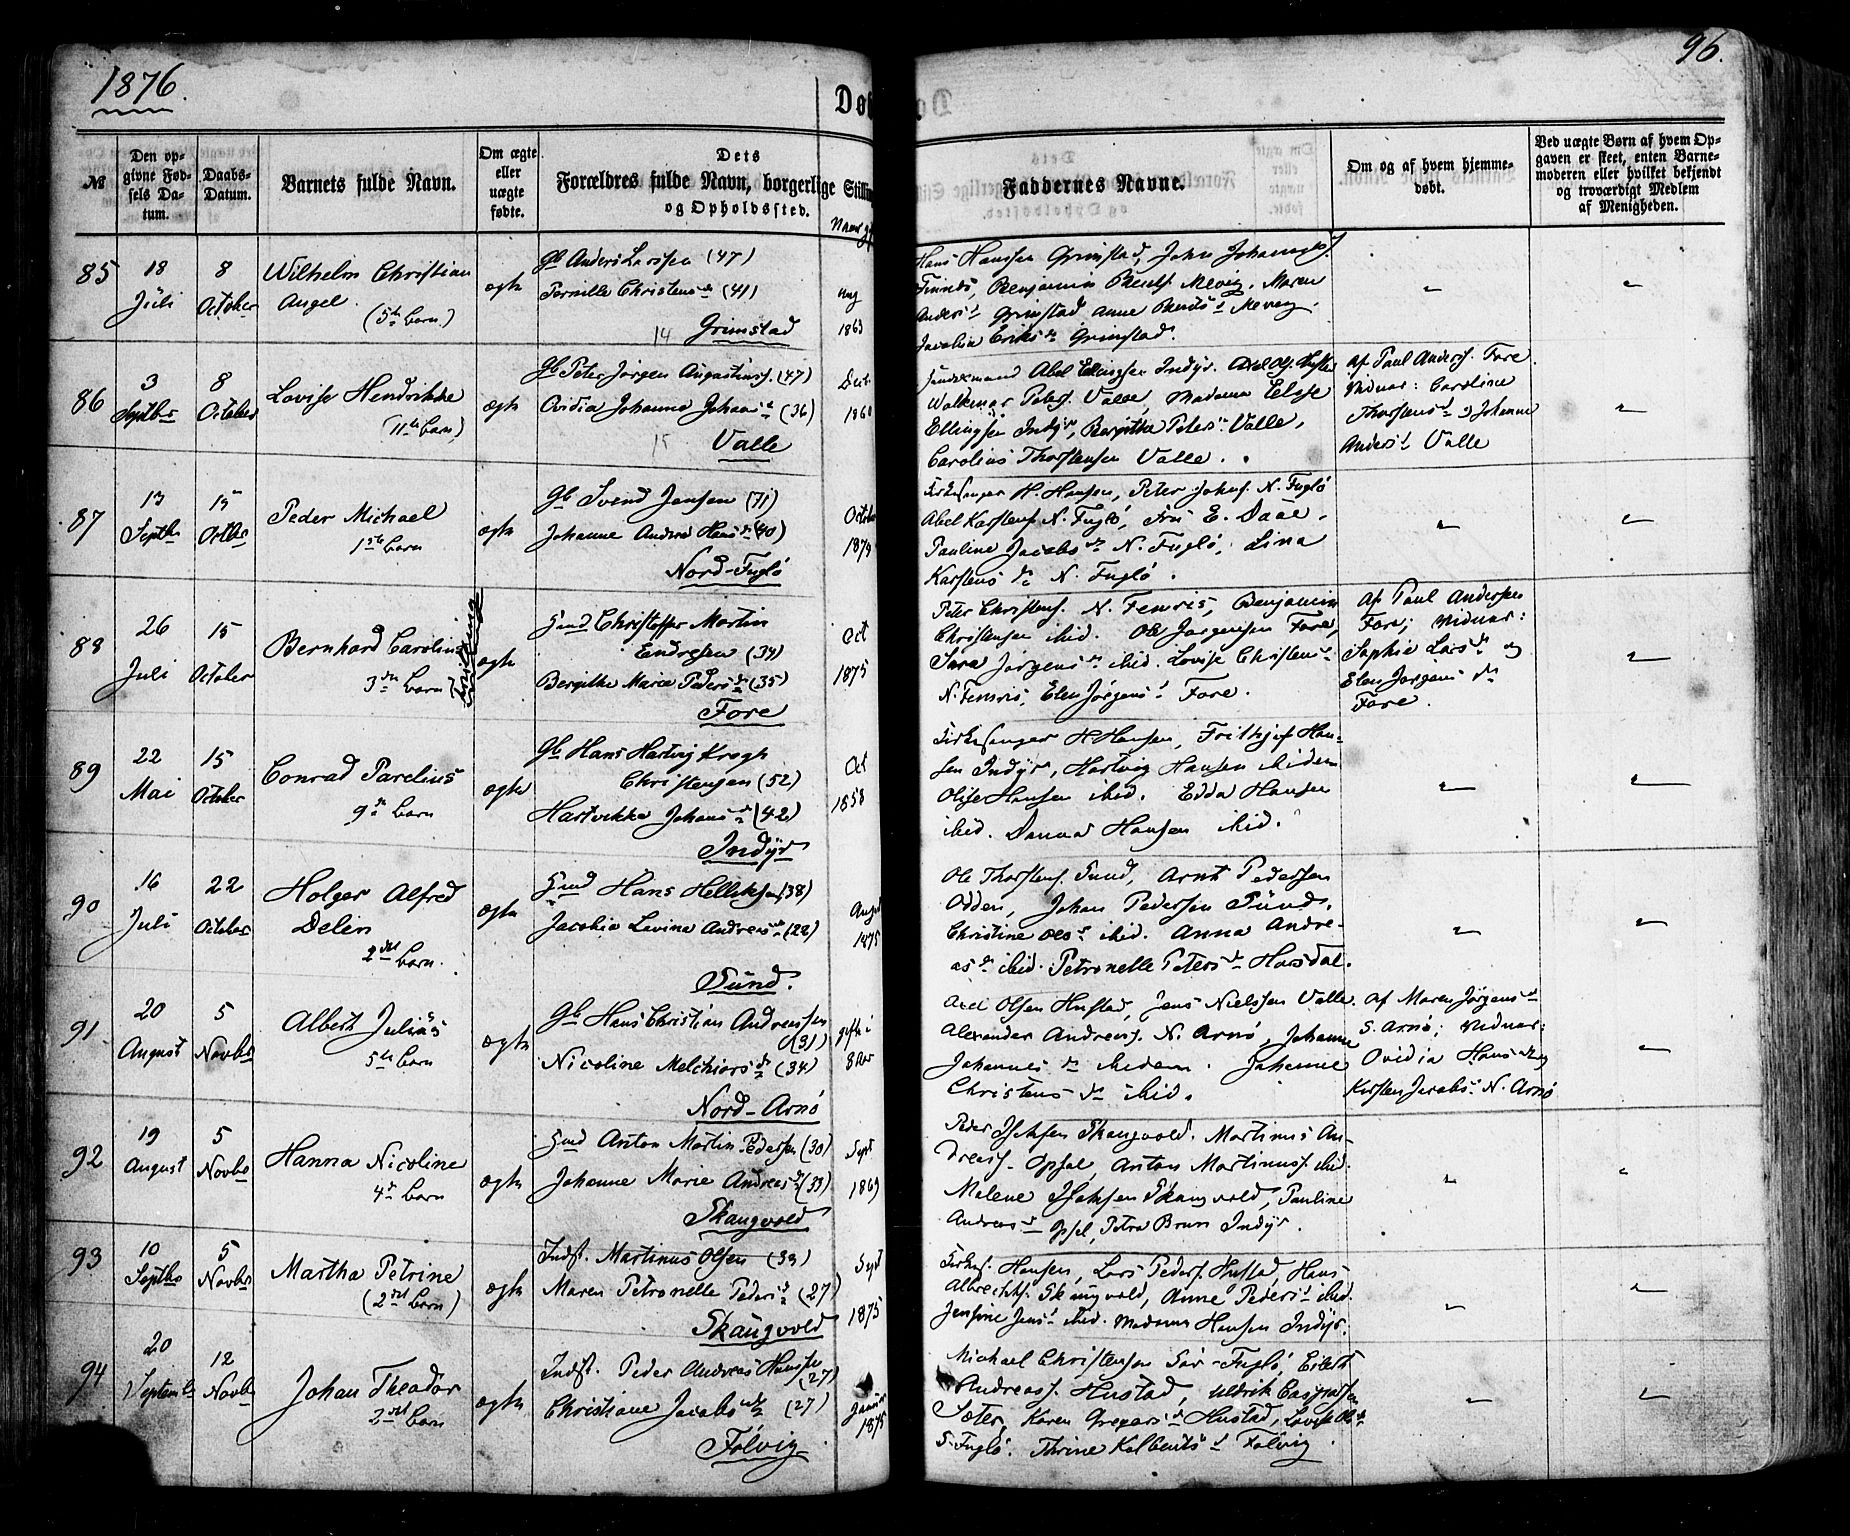 1876.
96.
Døb
№
Den op-
givne Fød-
sels Da-
tum.
Daabs-
Datum.
Barnets fulde Navn.
Om ægte
eller
uægte
fødte.
Dets
Forældres fulde Navn, borgerlige Stilling
og Opholdssted.
Faddernes Navne.
Om og af hvem hjemme-
døbt.
Ved uægte Børn af hvem Op-
gaven er skeet, enten Barne-
moderen eller hvilket bekjendt
og troværdigt Medlem
af Menigheden.
85
18
Juli
8
October
Wilhelm Christian
Angel.
(5te barn)
ægte
Gb Anders Larsen (47)
Pernille Christensd (41)
14 Grimstad
Aug
1863
Hans Hanssen Grimstad, John Johannes.
Finnes, Benjamin Mevig. Maren
Andersd Grimstad Anne Mevig.
Jacobia Eriksd Grimstad.
86
3
Septbr
8
October
Lovise Hendrikke
(11te barn)
ægte
Gb Peter Jørgen Augustinss. (47)
Ovidia Johanna Johansd (36)
15 Valle
Decb
1860
Abel Ellingsen Indyr. Axel Ols. Hustad
Walkmar Peters. Valle, Madame Elese
Ellingsen Indyr, Bergitha Petersd Valle,
Carolius Thorstensen Valle.
Af Paul Anderss. Fore.
Vidner: Caroline
Thorstensd og Johanne
Andersd Valle
87
13
Septbr
15
Octbr
Peder Michael
1ste barn
ægte
Gb Svend Jensen (71)
Johanne Andrea Hansd (40)
Nord-Fuglø
October
1874
Kirkesanger H. Hansen, Peter Johns. N. Fuglø
Abel Karstens. N. Fuglø, Fru E. Daae,
Pauline Jacobsd N. Fuglø, Lina
Karstensd N. Fuglø.
88
26
Juli
15
October
Bernhard Carolius
3die barn
tvilling
ægte
Gmd Christoffer Martin
Endresen (34)
Bergitha Maria Pedersd (35)
Fore
Oct
1875
Peter Christens. N. Femris, Benjamin
Christensen ibid. Ole Jørgensen Fore,
Sara Jørgensd ibid. Lovise Christensd
N. Femris, Elen Jørgensd Fore.
Af Paul Andersen
Fore; Vidner:
Sophie Larsd og
Elen Jørgensd
Fore.
89
22
Mai
15
October
Conrad Parelius
9de barn
ægte
Gb Hans Hartvig Krogh
Christensen (52)
Hartvikka Johansd (42)
Indyr
Oct
1858
Kirkesanger H Hansen, Frithjof Han-
sen Indyr, Hartvig Hansen ibidem
Olise Hansen ibid. Edda Hansen
ibid. Danna Hansen ibid.
90
16
Juli
22
October
Holger Alfred
Delin
2det barn.
ægte
Gmd Hans Helliksen (38)
Jacobia Levina Andreasd (22)
Sund.
August
1875
Ole Thorstens. Sund, Arnt Pedersen
Odden, Johan Pedersen Sund.
Christine Olsd ibid. Anna Andre-
asd ibid. Petronelle Petersd Horsdal.
91
20
August
5
Novbr
Albert Julius
5te barn
ægte
Gb Hans Christian Andreassen
(31)
Nicoline Melchiorsd (34)
Nord-Arnø
gift i
8 Aar
Axel Olsen Hustad, Jens Nielssen Valle.
Alexander Andreass. N. Arnø, Johanna
Johannesd ibidem. Johanne
Christensd ibid.
Af Maren Jørgensd
S. Arnø; Vidner:
Ovidia Hansd og
Karsten Jacobs. N. Arnø
92
19
August
5
Novbr
Hanna Nicoline
4de barn
ægte
Gmd Anton Martin Pedersen (30)
Johanne Marie Andreasd (33)
Skaugvold
Sept
1869
Peder Skaugvold. Martinus An-
dreass. Opsal, Anton Martinuss. ibid.
Malene Skaugvold, Pauline
Andreasd Opsal, Petra Bruun Indyr.
93
10
Septbr
5
Novbr
Martha Petrine
(2det barn)
ægte
Indst. Martinus Olsen (33)
Maren Petronelle Pedersd (27)
Skaugvold
Sept
1875
Kirkes. Hansen, Lars Peders. Hustad, Hans
Albrechts. Skaugvold, Anne Pedersd ibid.
Jensine Jensd ibid. Madame Hansen Indyr.
94
20
Septembr
12
Novbr
Johan Theodor
2det barn
ægte
Indst. Peder Andreas Hanssen
(27)
Christiane Jacobsd (27)
Følvig
Januar
1875
Michael Christensen Sør-Fuglø, Eilert
Andreass. Hustad, Uldrik Caspersen
Sæter, Karen Gregersd Hustad, Lovise Olsd
S. Fuglø. Thrine Kolbentsd Følvig.